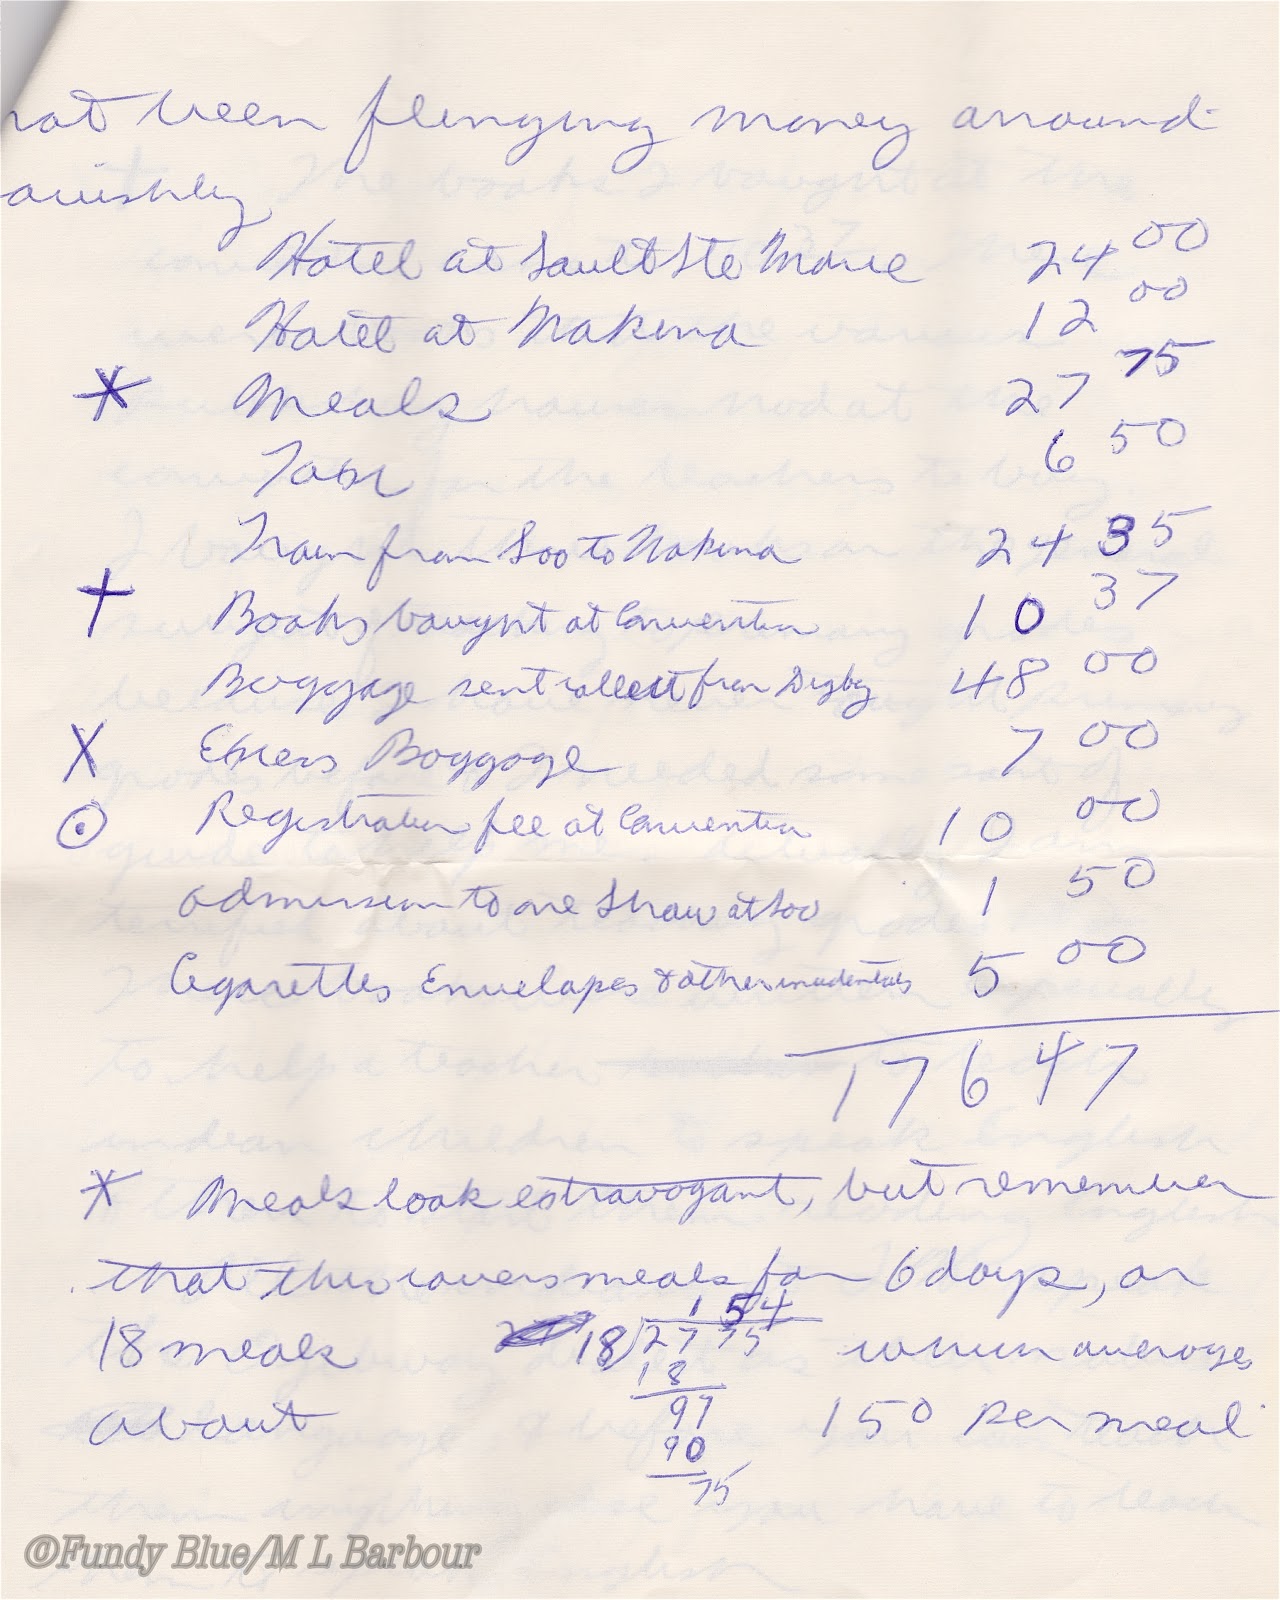 not been flinging money around
lavishly
Hotel at Sault Ste Marie 24 00
Hotel at Nakina 12 00
* Meals 27 75
Taxi 6 50
Train from Soo to Nakina 24 35
† Books bought at Convention 10 37
Baggage sent collect from Digby 48 00
X Excess Baggage 7 00
⊙ Registration fee at Convention 10 00
admission to one show at Soo 1 50
Cigarettes Envelopes & other incidentals 5 00
176 47
* Meals look extravagant, but remember
that this covers meals for 6 days, or
1 54
18 meals 18)27 75 which averages
18
97
about 1 50 per meal
90
75
©Fundy Blue/M L Barbour